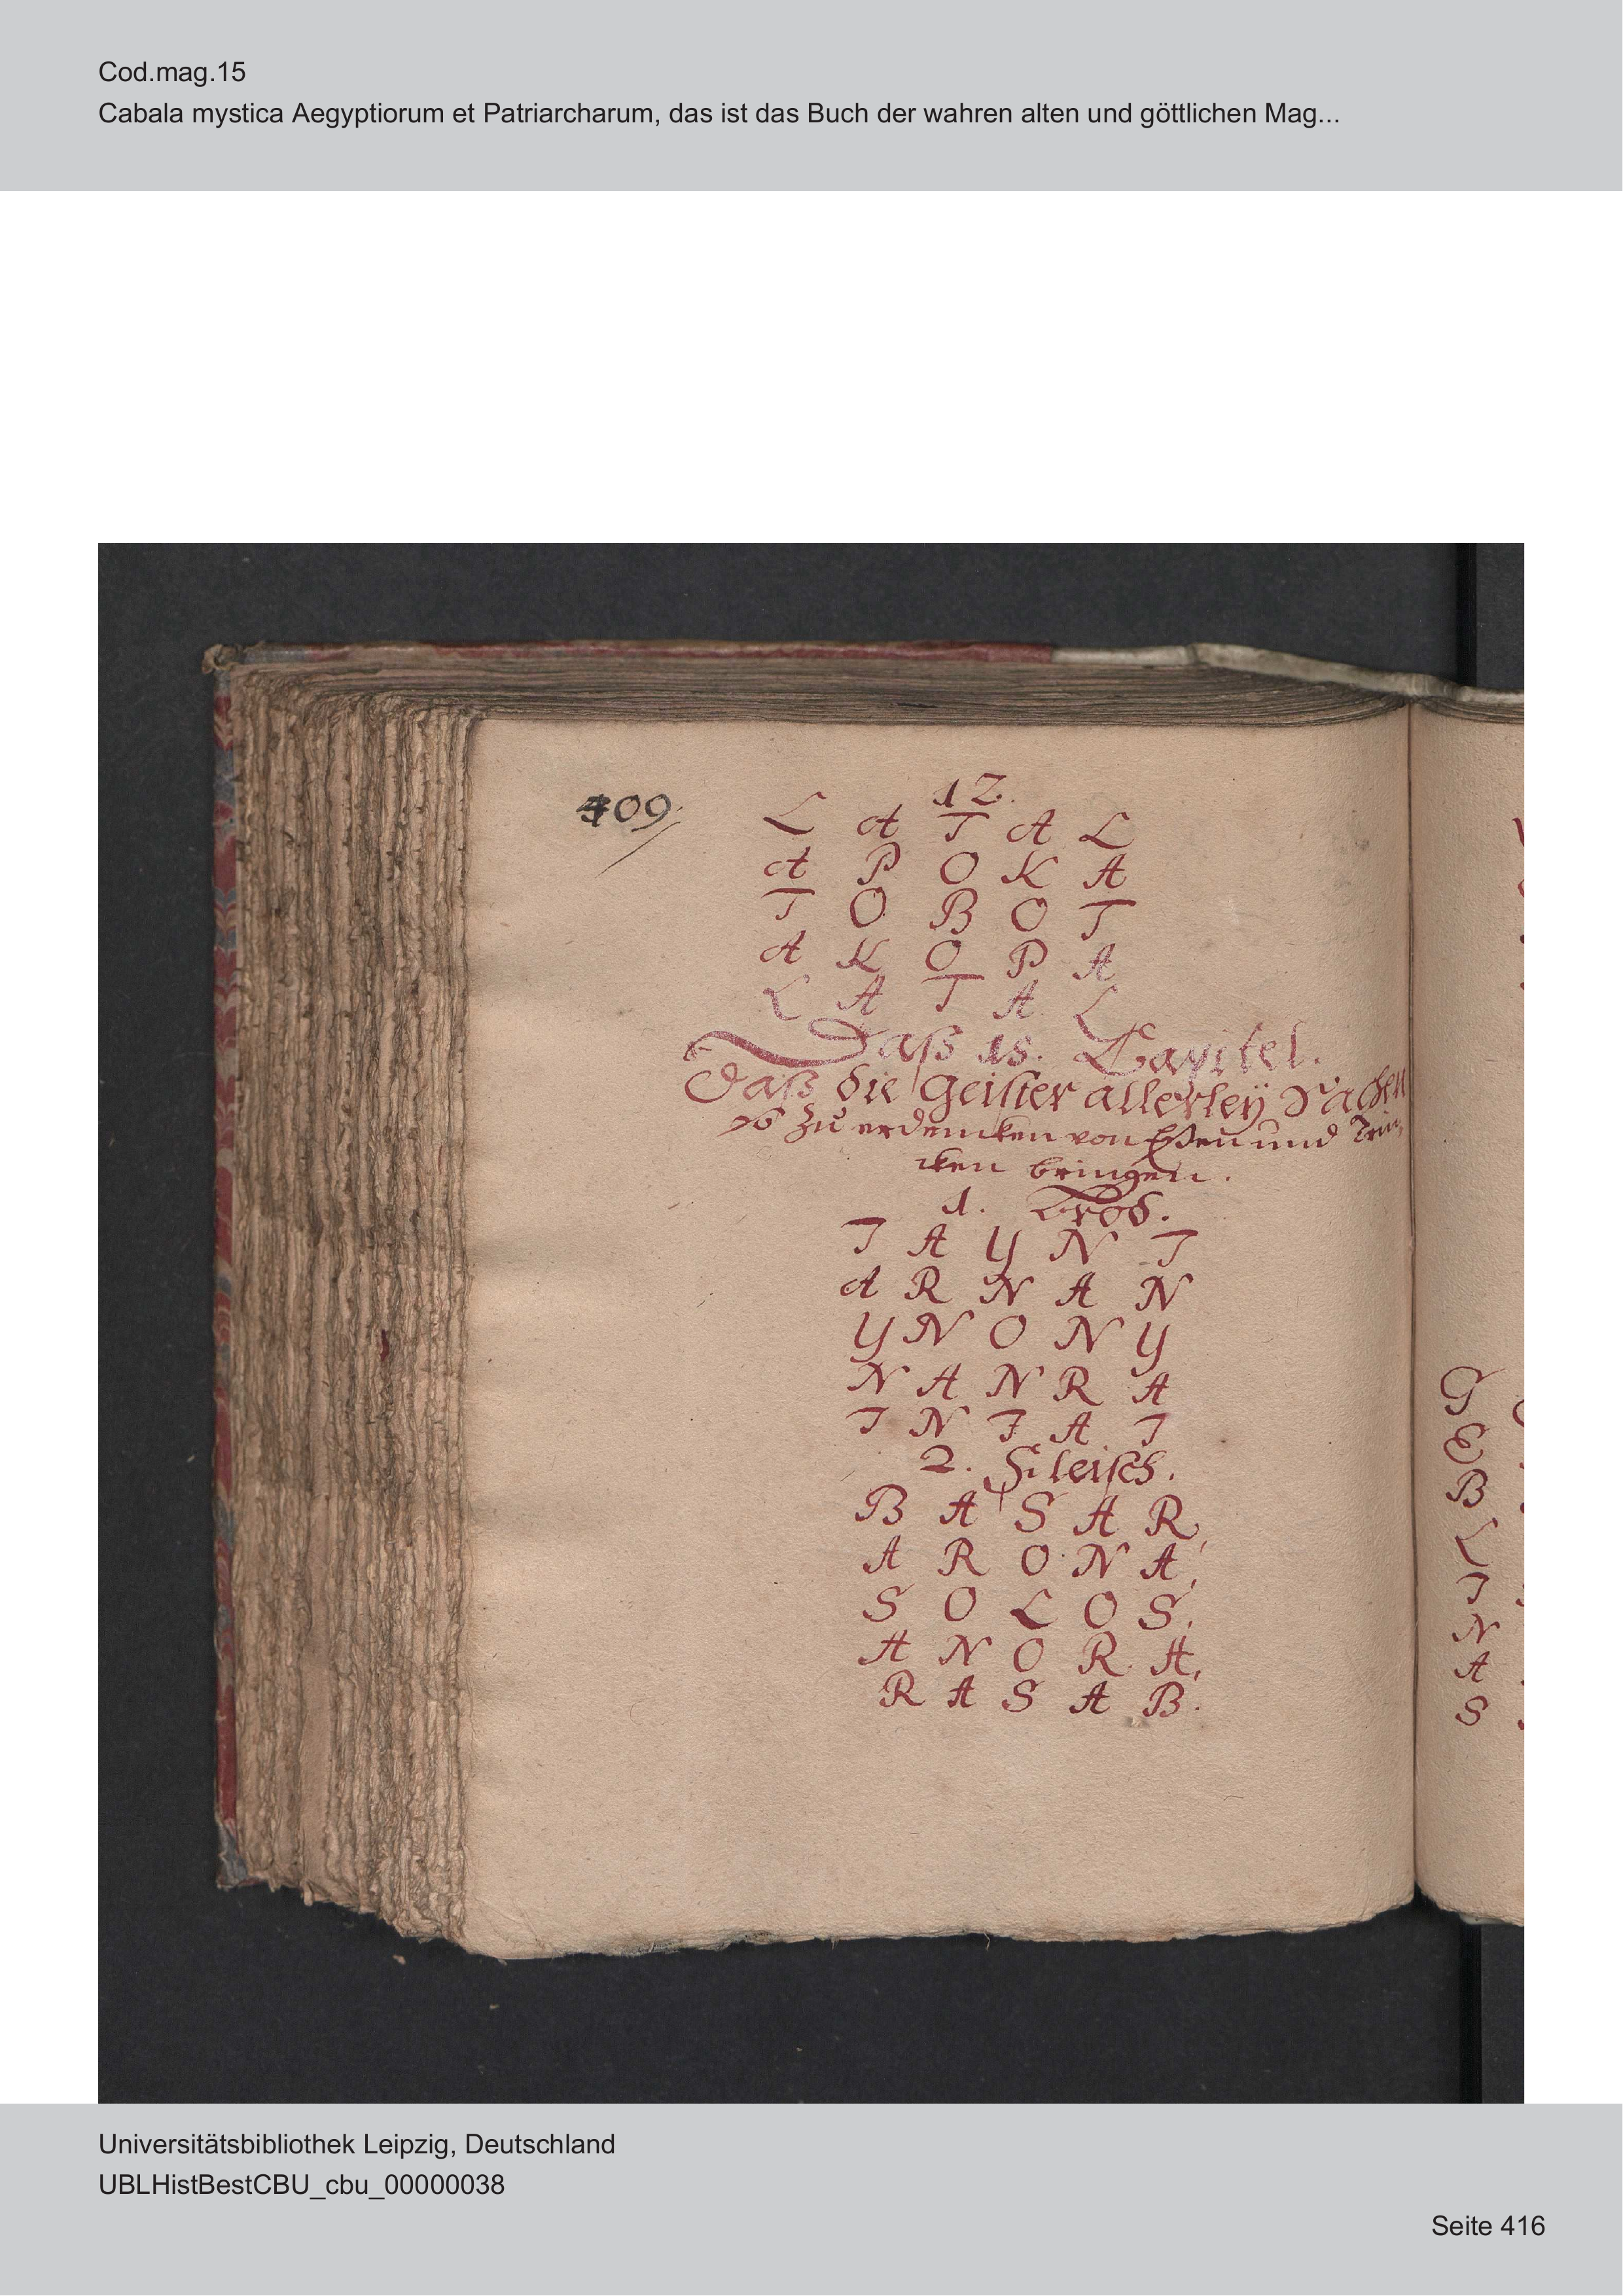 Cod.mag.15
Cabala mystica Aegyptiorum et Patriarcharum, das ist das Buch der wahren alten und göttlichen Mag...
409
12.
L A T A L
A P O K A
T O B O T
A K O P A
L A T A L
Daß 18. Capitel.
Daß die Geister allerley Sachen
so zu erdencken von Eßen und Trin,
cken bringen.
1. Brod.
I A Y N T
A R N A N
Y N O N Y
N A N R A
T N I A I
2. Fleisch.
B A S A R,
A R O N A,
S O L O S,
A N O R A,
R A S A B.
G
E
B
L
I
N
A
S
Universitätsbibliothek Leipzig, Deutschland
UBLHistBestCBU_cbu_00000038
Seite 416